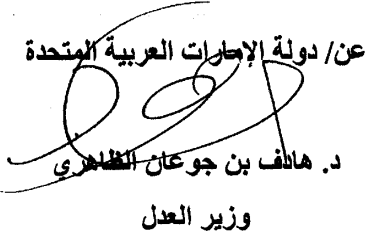 عن/ دولة الإمارات العربية المتحدة
د. هادف بن جوعان الظاهري
وزير العدل